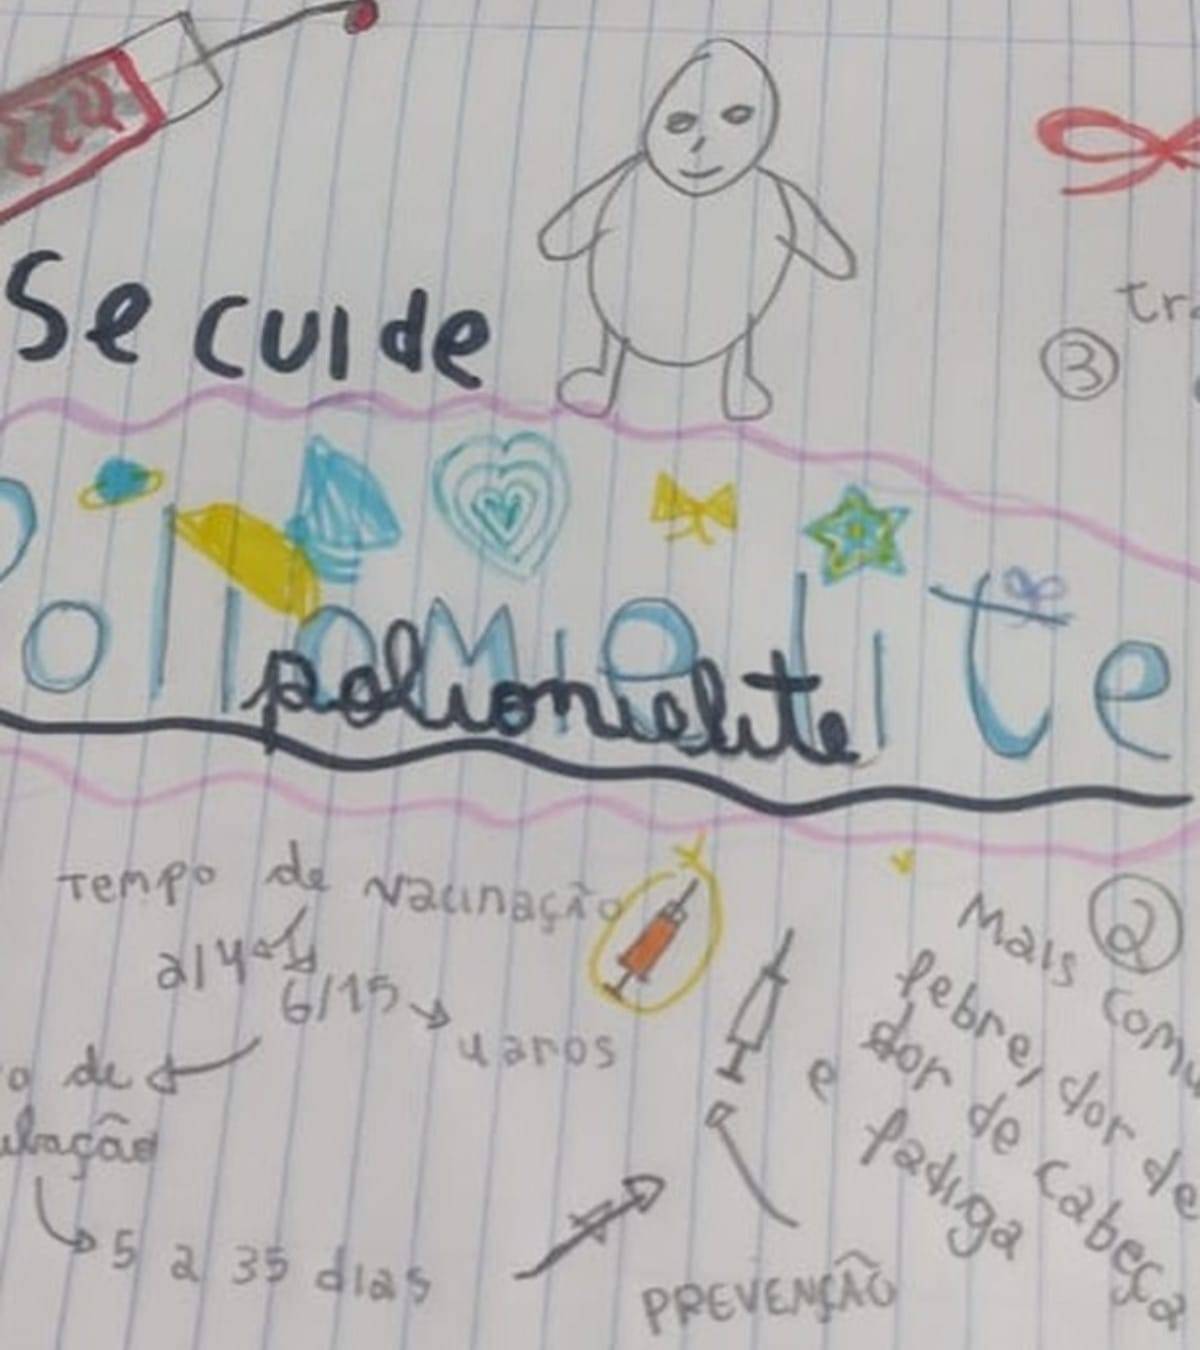 Se cuide
tr
3
Poliomielite
polionielite
Tempo de vacinação
2/4
6/15
4 anos
o de
ubação
5 a 35 dias
PREVENÇÃO
2
Mais comu
febre, dor de
dor de cabeça
e fadiga